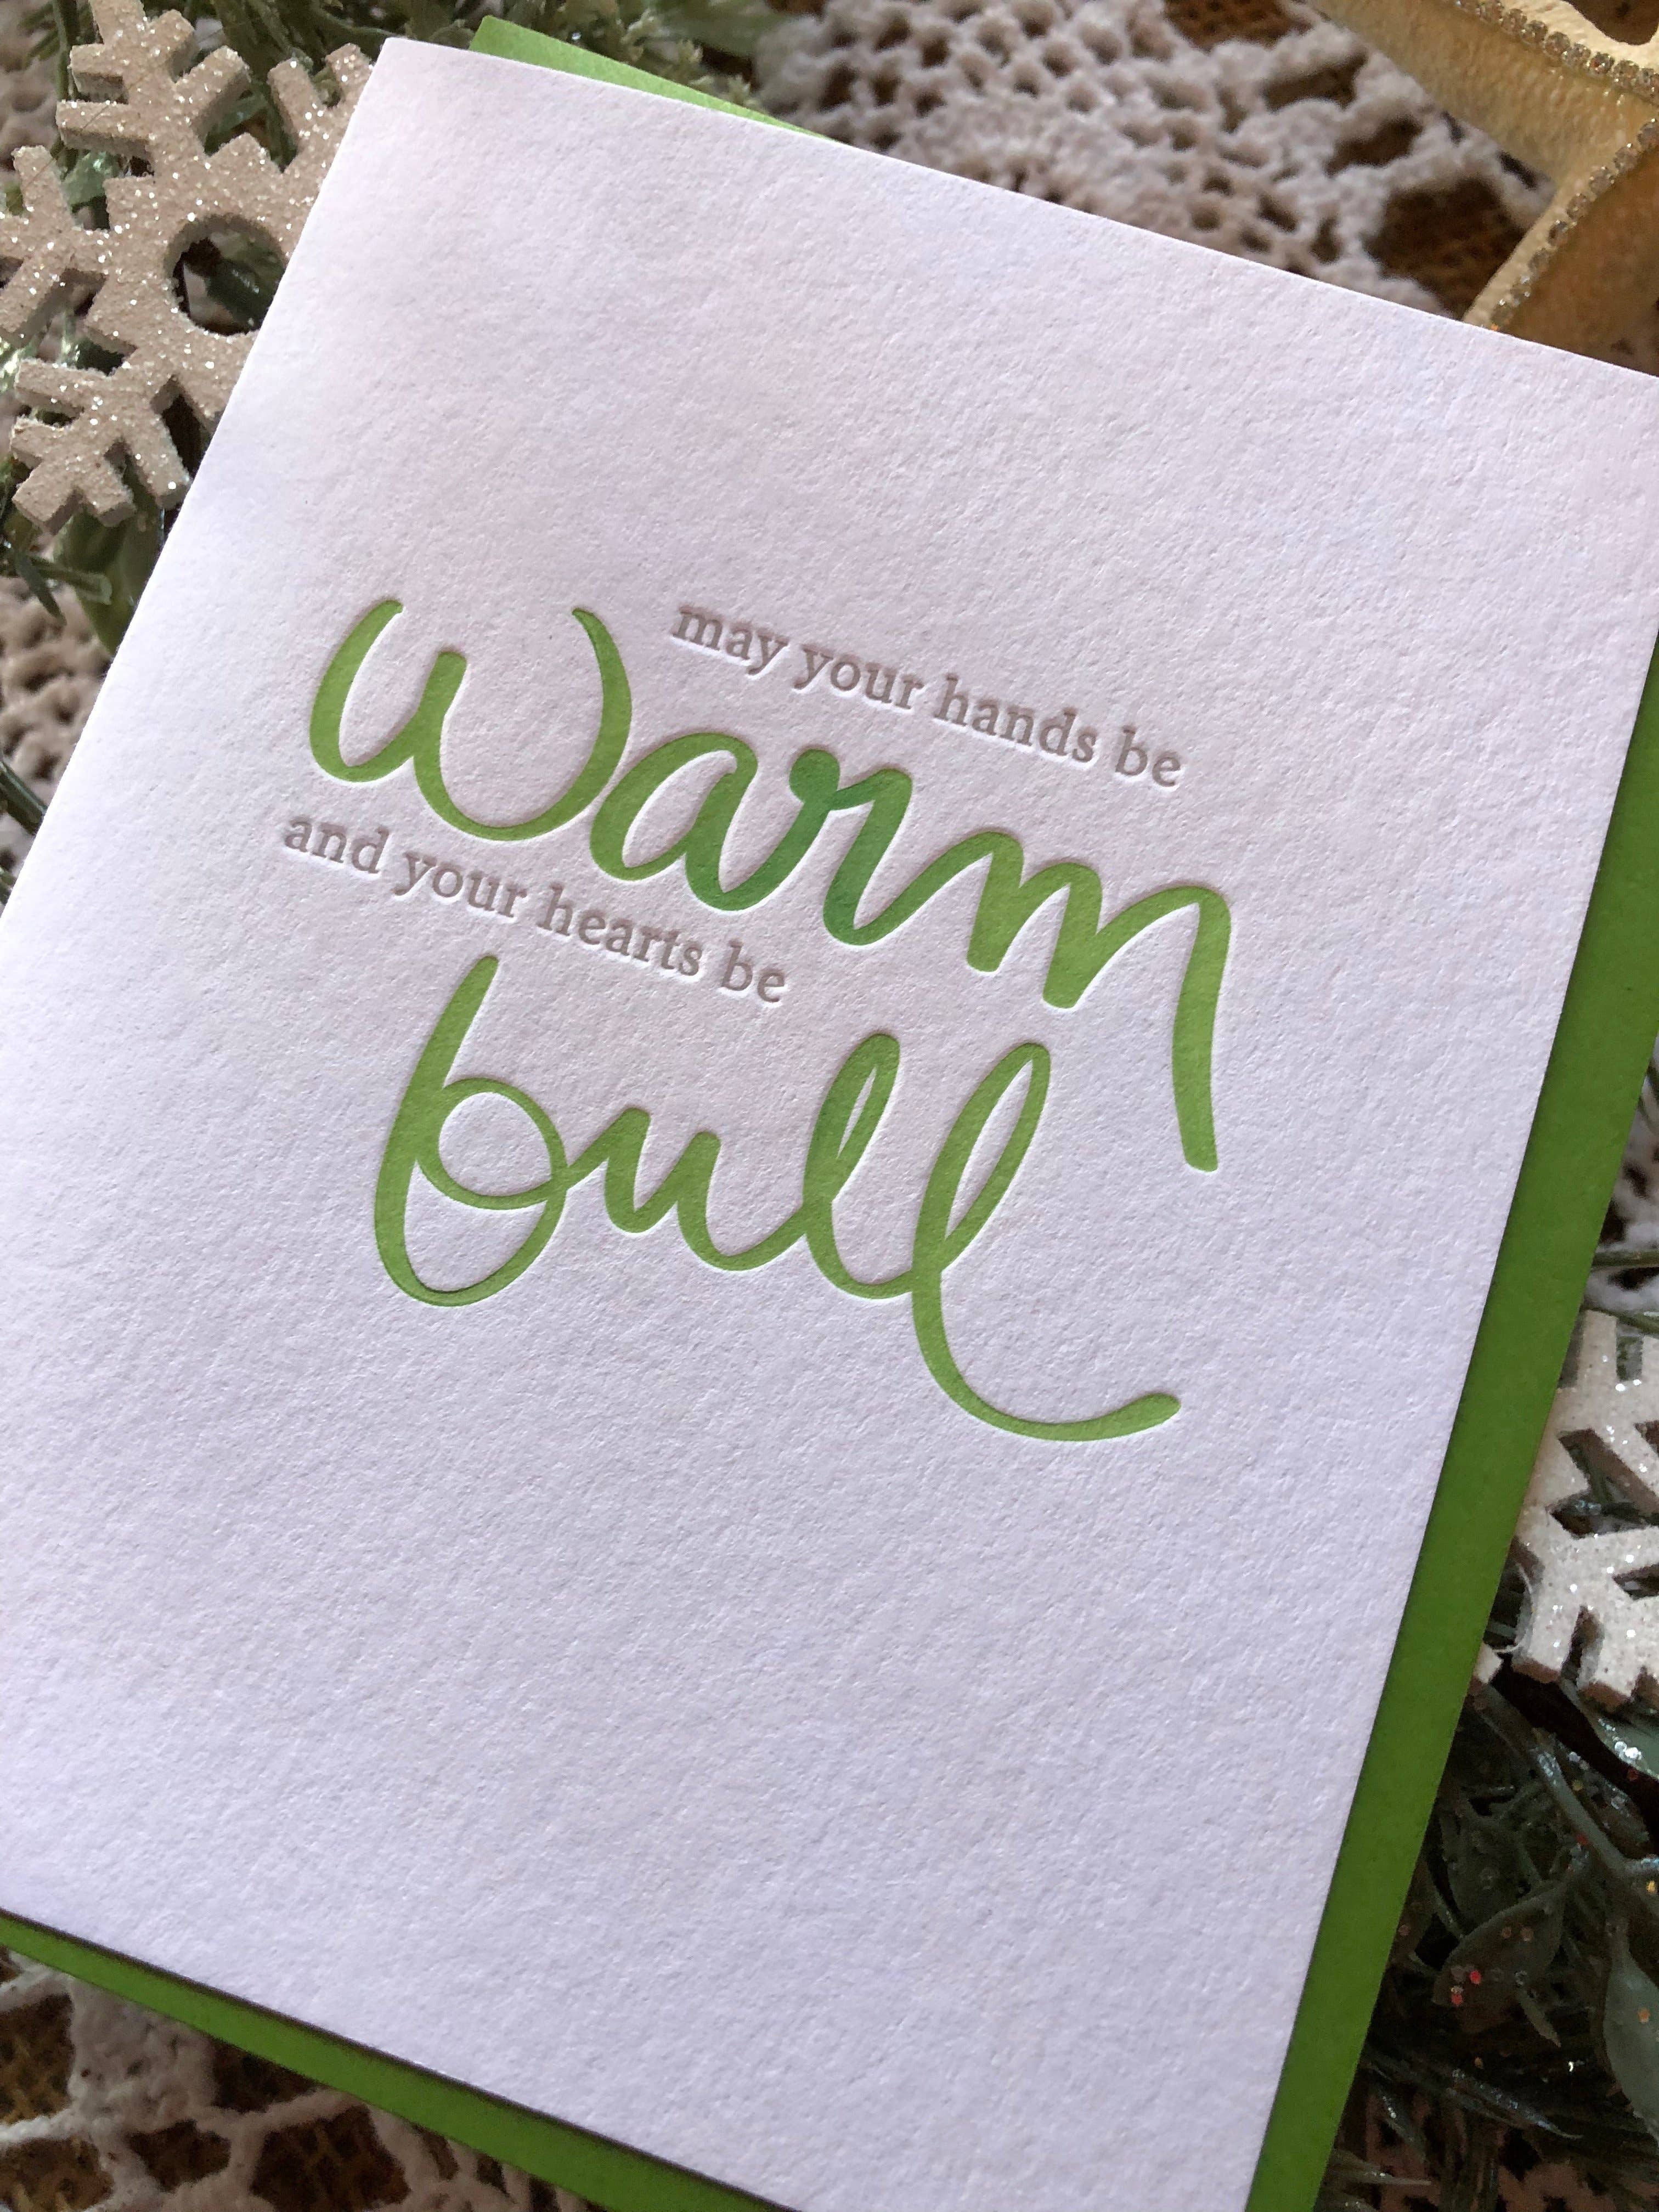 may your hands be
warm
and your hearts be
full